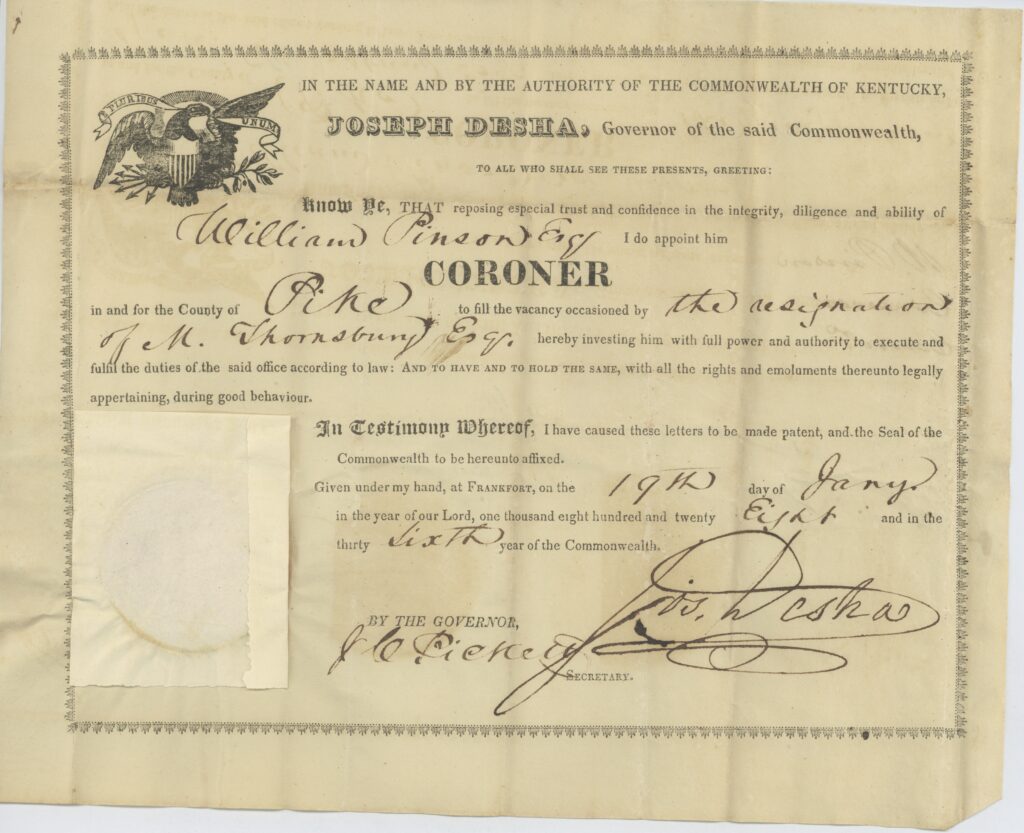 E PLURIBUS UNUM
IN THE NAME AND BY THE AUTHORITY OF THE COMMONWEALTH OF KENTUCKY,
JOSEPH DESHA, Governor of the said Commonwealth,
TO ALL WHO SHALL SEE THESE PRESENTS, GREETING:
Know Ye, THAT reposing especial trust and confidence in the integrity, diligence and ability of
William Pinson Esqr I do appoint him
CORONER
in and for the County of Pike to fill the vacancy occasioned by the resignation
of M. Thornsbury Esqr. hereby investing him with full power and authority to execute and
fulfil the duties of the said office according to law: AND TO HAVE AND TO HOLD THE SAME, with all the rights and emoluments thereunto legally
appertaining, during good behaviour.
In Testimony Whereof, I have caused these letters to be made patent, and the Seal of the
Commonwealth to be hereunto affixed.
Given under my hand, at FRANKFORT, on the 19th day of Jany.
in the year of our Lord, one thousand eight hundred and twenty Eight and in the
thirty sixth year of the Commonwealth.
Jos. Desha
BY THE GOVERNOR,
J C Pickett
SECRETARY.